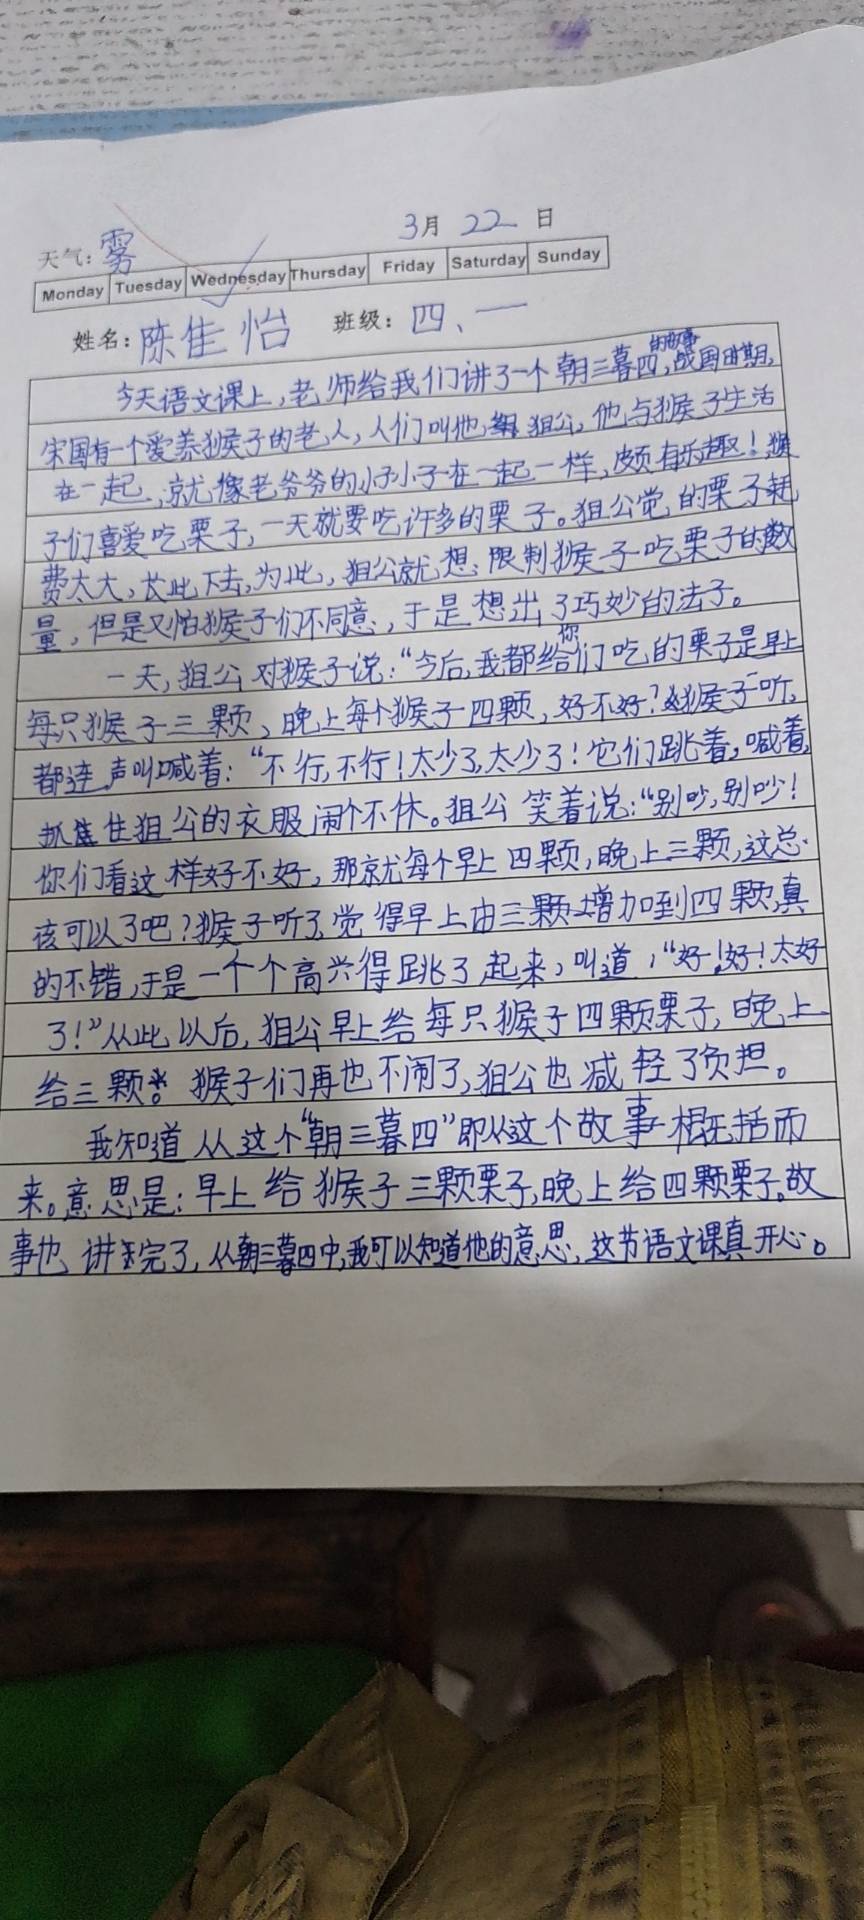 3月 22 日
天气：雾
Monday Tuesday Wednesday Thursday Friday Saturday Sunday
姓名：陈佳怡 班级：四、一
今天语文课上，老师给我们讲了一个朝三暮四的故事，战国时期，
宋国有一个爱养猴子的老人，人们叫他狙公，他与猴子生活
在一起，就像老爷爷的小子小子在一起一样，颇有乐趣！猴
子们喜爱吃栗子，一天就要吃许多的栗子。狙公觉的栗子耗
费太大，长此下去，为此，狙公就想：限制猴子吃栗子的数
量，但是又怕猴子们不同意，于是想出了巧妙的法子。
一天，狙公对猴子说：“今后，我都给你们吃的栗子是早上
每只猴子三颗，晚上每个猴子四颗，好不好？猴子一听，
都连声叫喊着：“不行，不行！太少了，太少了！它们跳着，喊着，
抓住狙公的衣服闹个不休。狙公笑着说：“别吵，别吵！
你们看这样好不好，那就每个早上四颗，晚上三颗，这总
该可以了吧？猴子听了，觉得早上由三颗增加到四颗，真
的不错，于是一个个高兴得跳了起来，叫道，“好！好！太好
了！”从此以后，狙公早上给每只猴子四颗栗子，晚上
给三颗。猴子们再也不闹了，狙公也减轻了负担。
我知道从这个“朝三暮四”即从这个故事概括而
来。意思是：早上给猴子三颗栗子，晚上给四颗栗子，故
事也讲完了，从朝三暮四中，我可以知道他的意思，这节语文课真开心。